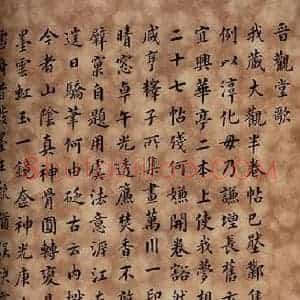 晋觀堂歌
我藏大觀半卷帖已壓鄭
例以淳化毋乃謙增長舊
宜興華亭二本上使我夢
二十七帖殘何嫌開卷豁然
咸亨釋子所集畫萬川一印
晴窓卓午光透簾焚香不
檗窠自題用虞法意涯江
違日驕筆何由砭古云内
今者山陰真神骨圓轉變
墨雲虹玉一鏡奩神光